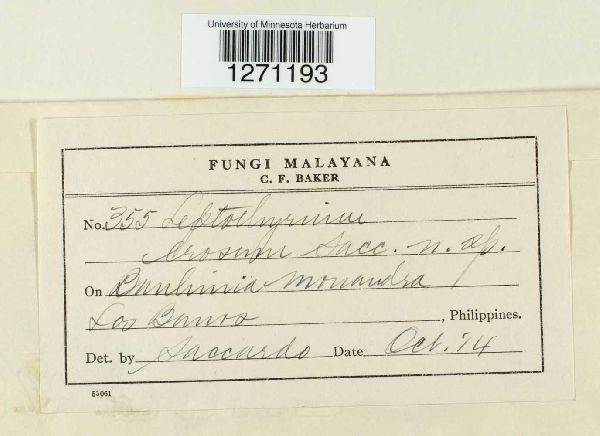 University of Minnesota Herbarium
1271193
FUNGI MALAYANA
C. F. BAKER
No. 355 Leptothyrium
erosum Sacc. n. sp.
On Bauhinia monandra
Los Banos, Philippines.
Det. by Saccardo Date Oct. '14
53061